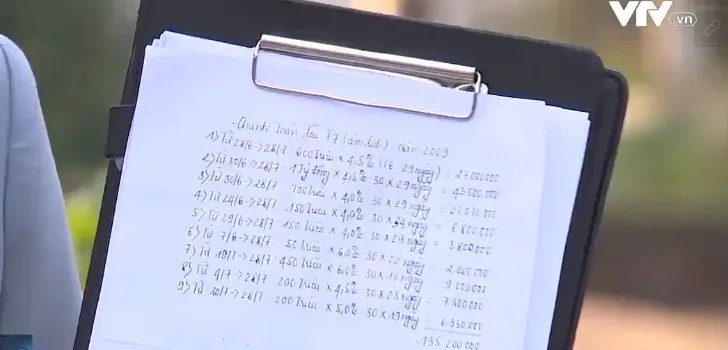 VTV.vn
- Thanh toán lãi T7 (âm lịch) năm 2009
1) Từ 28/6->28/7 600 triệu × 4,5% (T6 29 ngày) = 27.000.000
2) Từ 30/6->28/7: 1 tỷ đồng × 4,5% 30 × 29 ngày = 43.500.000
3) Từ 30/6->28/7: 700 triệu × 4,0% 30 × 29 ngày = 27.070.000
4) Từ 24/6->28/7: 150 triệu × 4,0% 30 × 34 ngày = 6.800.000
5) Từ 29/6->28/7: 150 triệu × 4,0% 30 × 29 ngày = 5.800.000
6) Từ 7/6->28/7: 50 triệu × 6,0% 30 × 22 ngày = 2.200.000
7) Từ 19/7->28/7: 450 triệu × 6,0% 30 × 10 ngày = 9.000.000
8) Từ 4/7->28/7: 200 triệu × 4,5% 30 × 25 ngày = 7.500.000
9) Từ 10/7->28/7: 200 triệu × 5,0% 30 × 19 ngày = 6.330.000
135.200.000